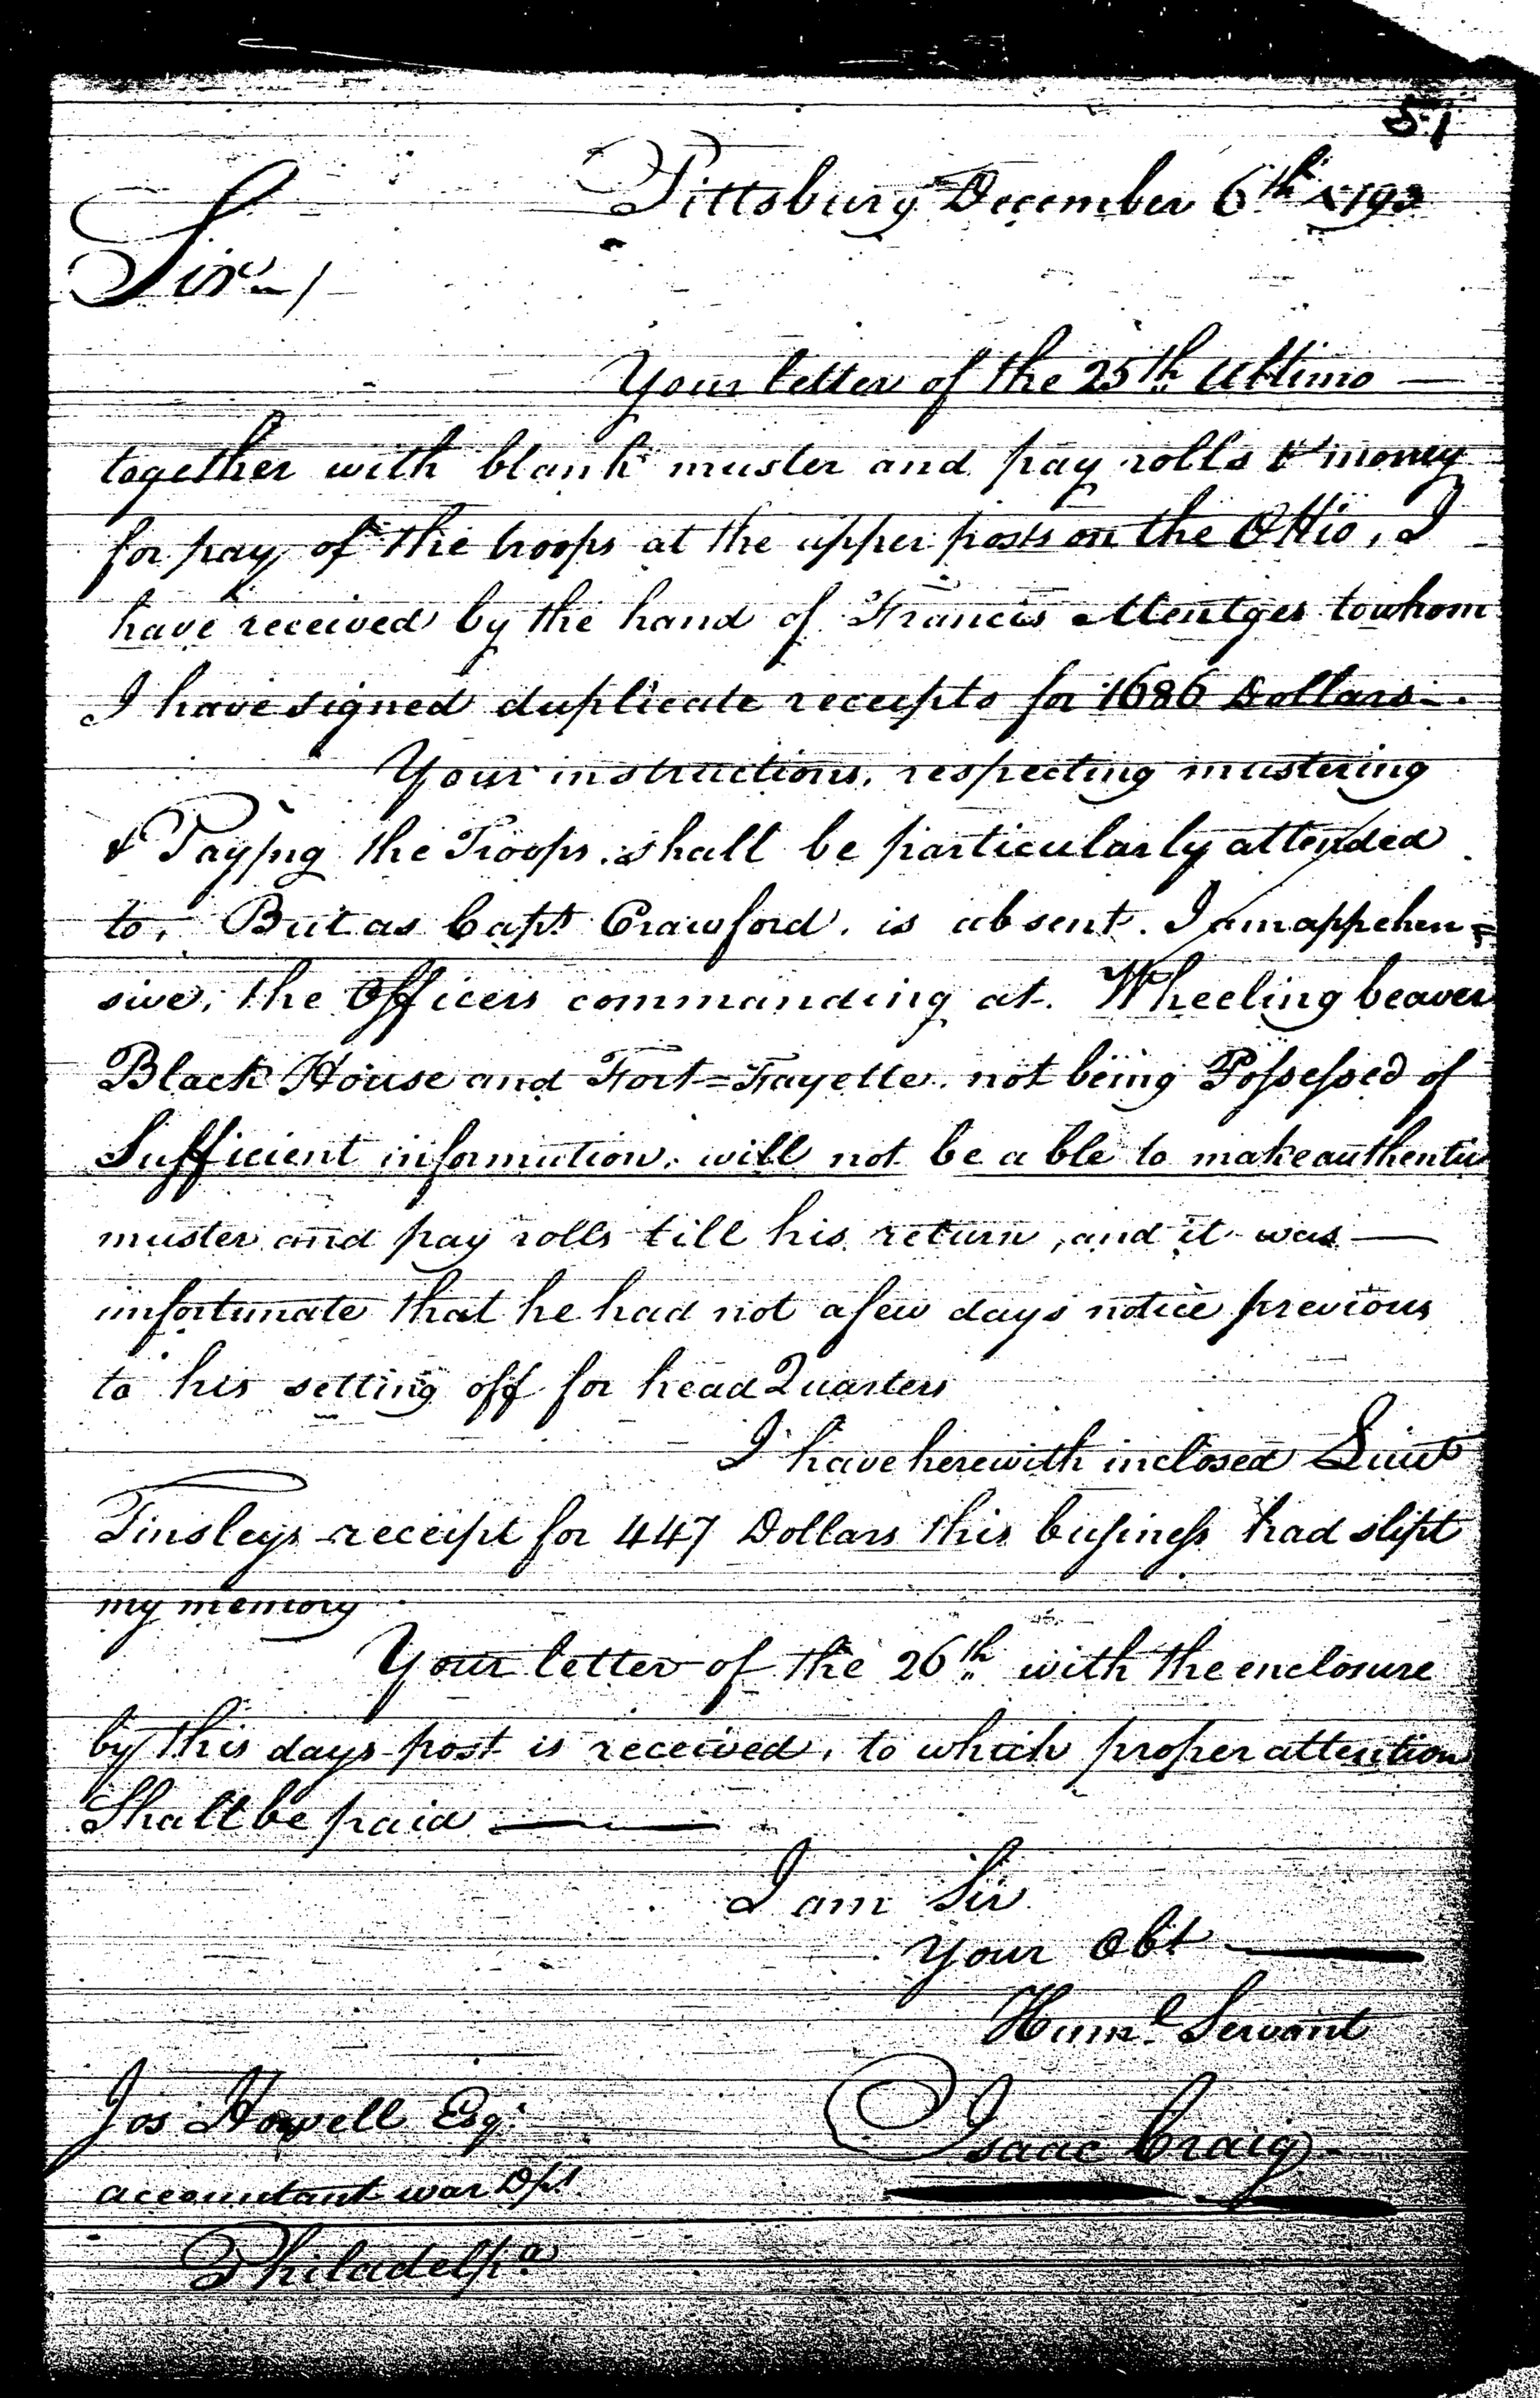 51
Pittsburg December 6th 1793
Sir /
Your letter of the 25th Ultimo —
together with blank muster and pay rolls & money
for pay of the troops at the upper posts on the Ohio, I
have received by the hand of Francis Mentges to whom
I have signed duplicate receipts for 1686 Dollars.
Your instructions, respecting mustering
& Paying the Troops, shall be particularly attended
to, But as Capt Crawford, is absent. I am apprehen=
sive, the Officers commanding at Wheeling beaver
Block House and Fort=Fayette, not being Possessed of
Sufficient information, will not be able to make authentic
muster and pay rolls till his return, and it was —
unfortunate that he had not a few days notice previous
to his setting off for head Quarters
I have herewith inclosed Lieut
Tinsleys receipt for 447 Dollars this business had slipt
my memory
Your letter of the 26th with the enclosure
by this days post is received, to which proper attention
Shall be paid ——
I am Sir
your Obt ——
Huml Servant
Isaac Craig
Jos Howell Esqr
accountant war Dpt
Philadelpa